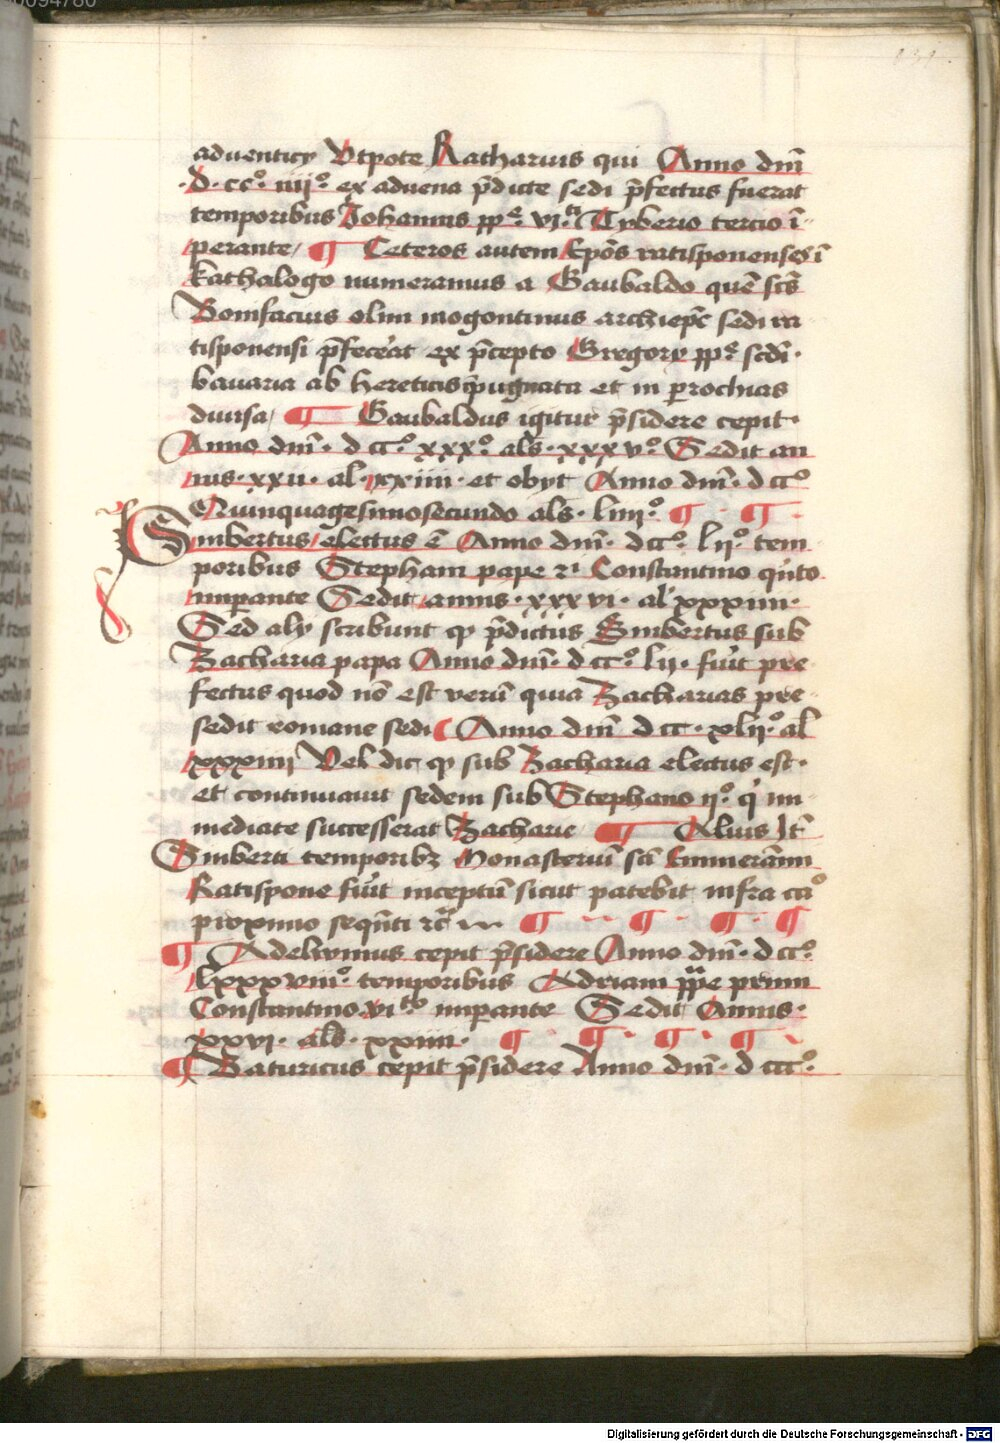 00094780
131
aduenticy Vtpote Ratharius qui Anno dnī
·D·cc°· iiij°· ex aduena p̄dicte sedi p̄fectus fuerat
temporibus Johannis pp̄e· vi.ti Tyberio tercio ī-
perante ¶ Ceteros autem Ep̄os ratisponenses ī
kathalogo numeramus a Gaubaldo quē scs̄
Bonifacius olim mogontinus archiep̄c sedi ra
tisponensi p̄fecerat ex p̄cepto Gregorÿ pp̄e scdi·
bauaria ab hereticis expugnata et in parochias
diuisa ¶ Gaubaldus igitur p̄sidere cepit·
Anno dnī· dcc°· xxx°· als̄· xxxv°· Sedit an
nis· xxii· al· xxiiii· et obyt Anno dnī· dcc°
Quinquagesimosecundo als̄· liiij°· ¶ · ¶ ·
Simbertus electus ē Anno dnī· dcc°· lij°· tem
poribus Stephani pape ii Constantino quīto
imperante Sedit annis· xxxvi· al xxxiiii·
Sed aly scribunt qꝫ p̄dictus Simbertus sub
Zacharia papa Anno dnī· dcc°· lii· fuit pre
fectus quod nō est verū quia Zacharias pre
sedit romane sedi Anno dnī dcc· xlij°· al
xxxiiij Vel dic qꝫ sub Zacharia electus est·
et continuauit sedem sub Stephano ij°· qi im
mediate successerat Zacharie ¶ Alius It̄
Simberti temporibꝫ Monasteriū sci Emmerāmi
Ratispone fuit inceptū sicut patebit infra ca°
proximo sequēti rc̄ ¶ ·· ¶ · ¶ · ¶
¶ Adelwinus cepit p̄sidere Anno dnī· dcc°·
lxxxviii°· temporibus Adriani pp̄e primi
Constantino vi.to imperante Sedit Annis·
xxvi· als̄· xxiiii· ¶ · ¶ · ¶ · ¶
¶ Baturicus cepit p̄sidere Anno dnī· dccc°·
Digitalisierung gefördert durch die Deutsche Forschungsgemeinschaft - DFG